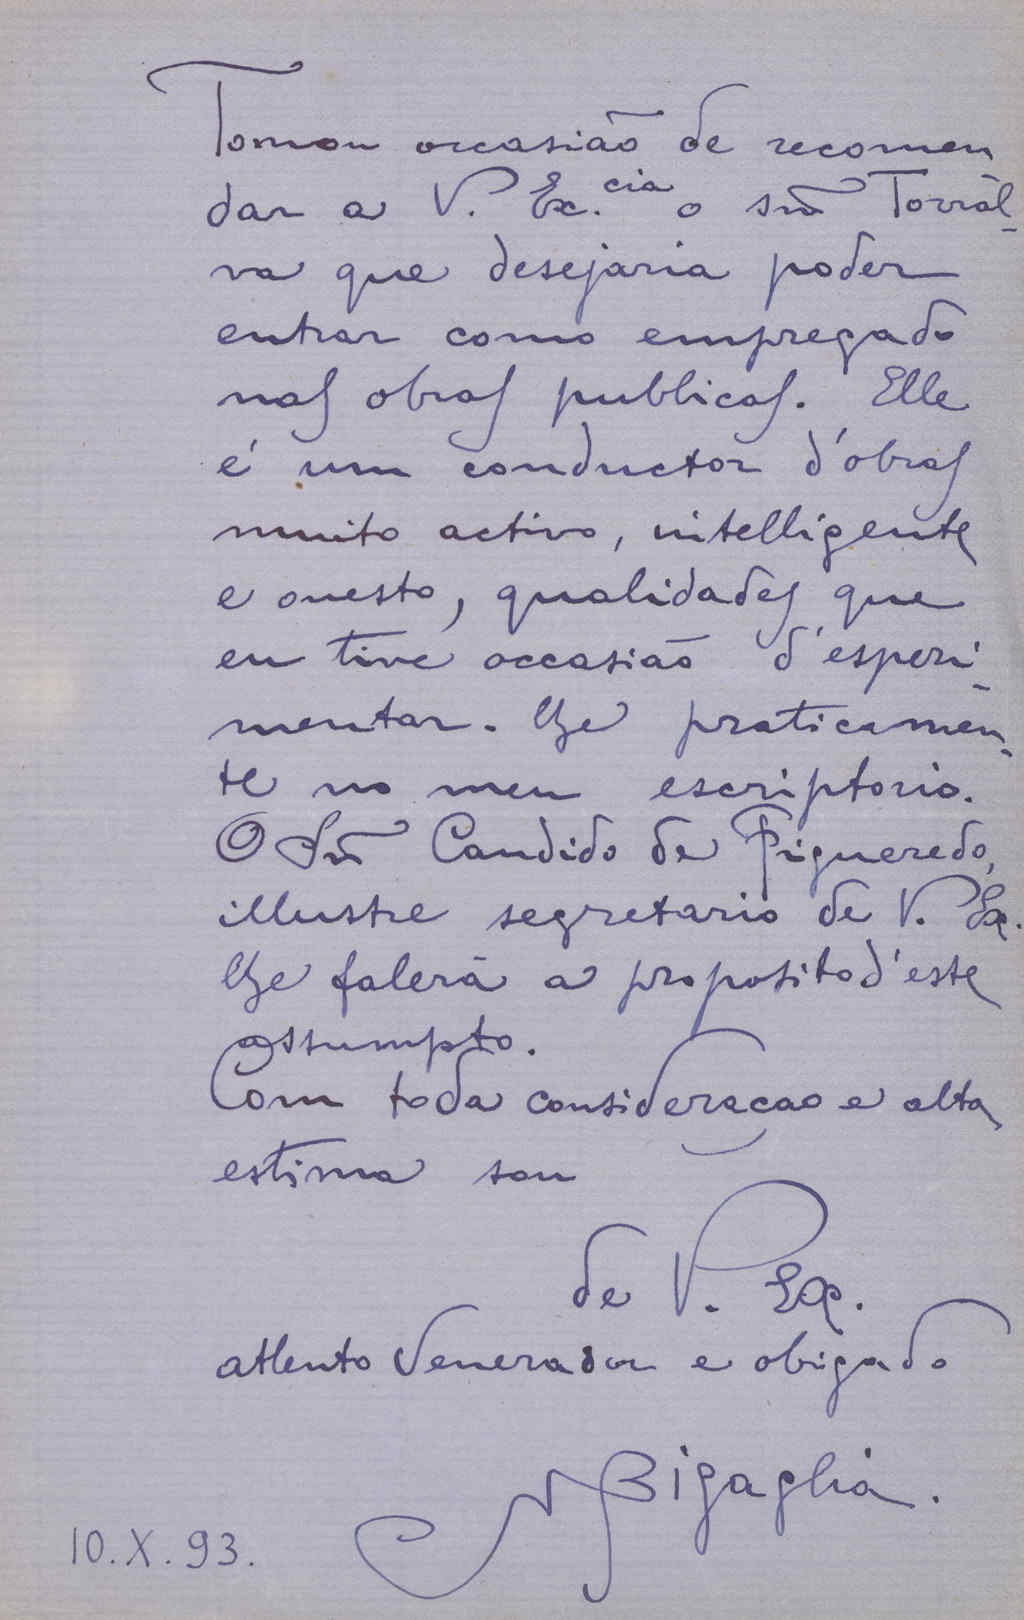 Tomou occasião de recomen
dar a V. Ex.cia o snr Torrál-
va que desejaria poder
entrar como empregado
nas obras publicas. Elle
é um conductor d'obras
muito activo, intelligente
e onesto, qualidades que
eu tive occasião d'esperi-
mentar. lhe praticamen-
te no meu escriptorio.
O Snr Candido de Figueredo,
illustre segretario de V. Ex.
lhe falerà a proposito d'este
assumpto.
Com toda consideraçao e alta
estima sou
de V. Ex.
attento Venerador e obigado
N Bigaglia.
10.X.93.